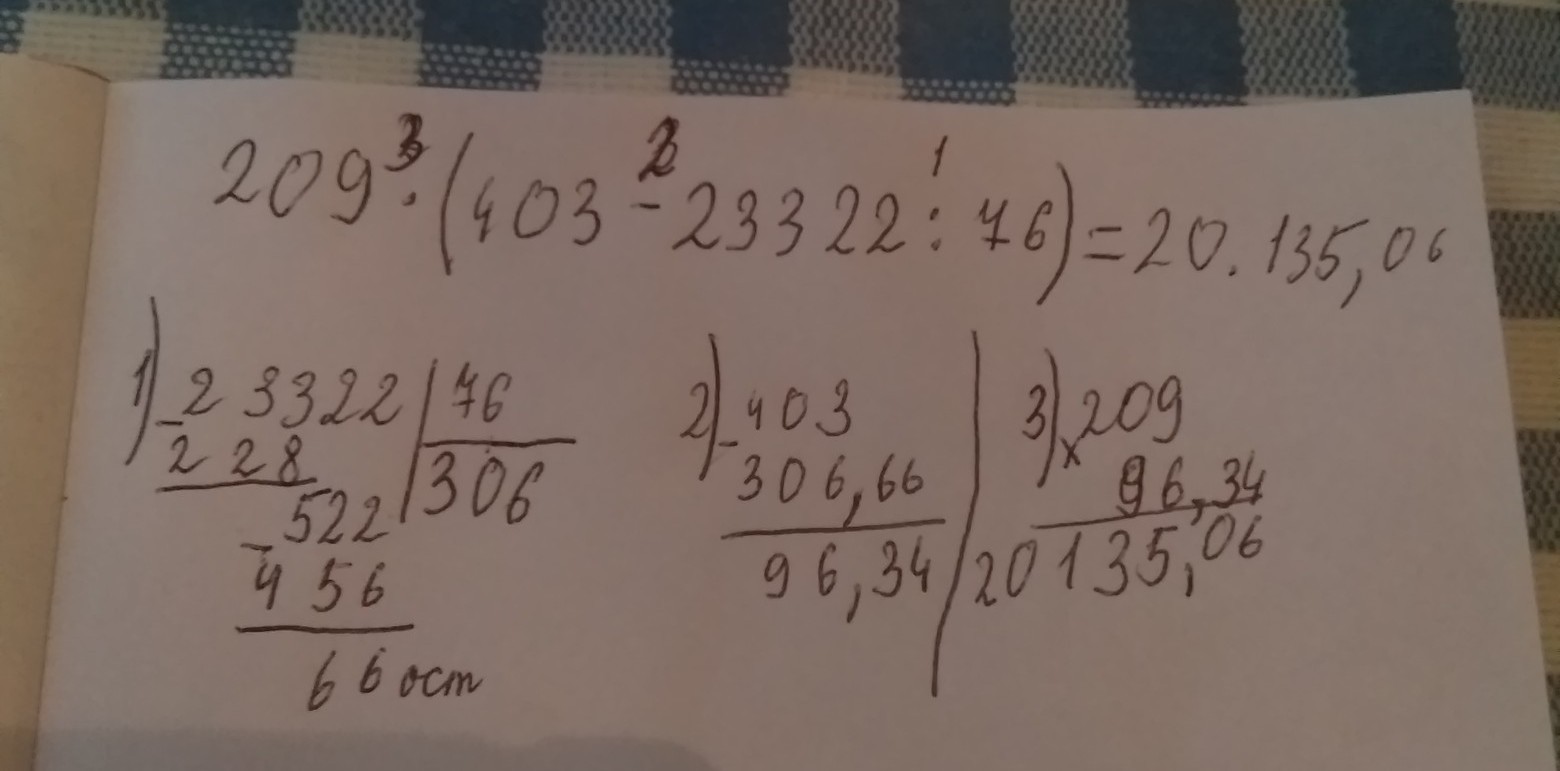 209 · (403 - 23322 : 76) = 20.135,06
3 2 1
1) 23322 | 76
- 228 | 306
522
- 456
66 ост
2) 403
- 306,66
96,34
3) 209
x 96,34
20135,06